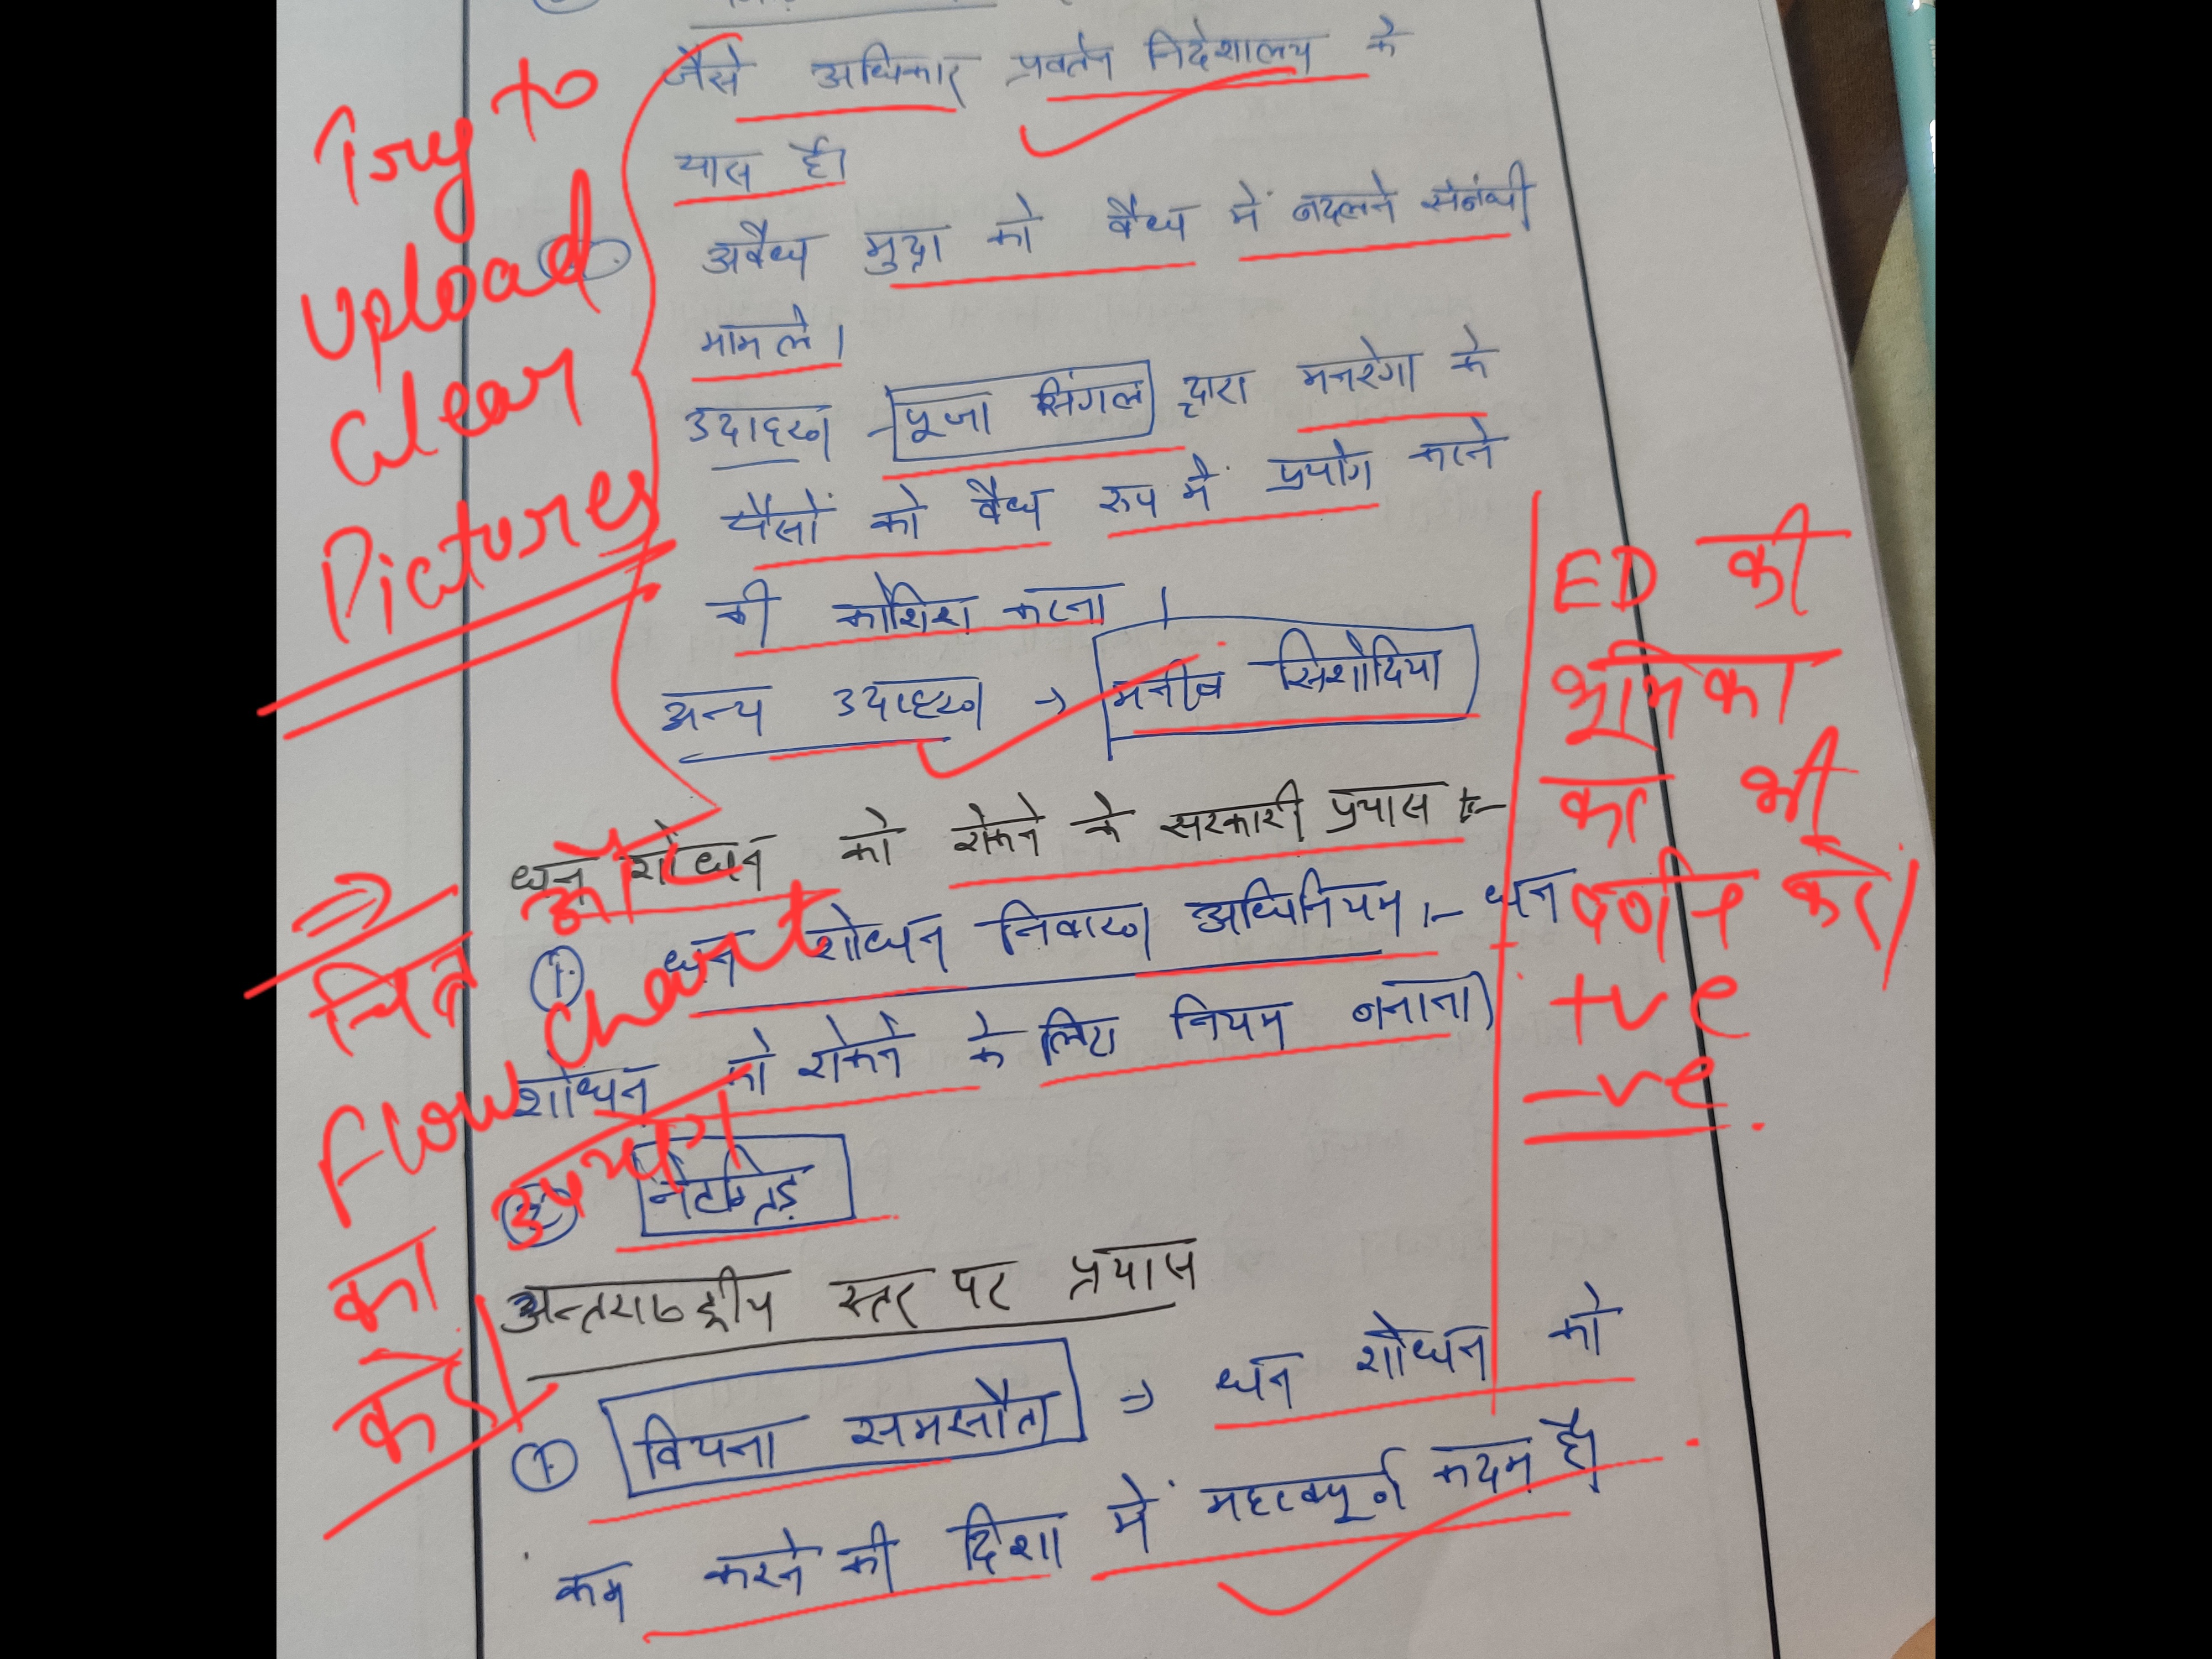 जैसे अधिकार प्रवर्तन निदेशालय के
पास है।
अवैध मुद्रा को वैध में बदलने संबंधी
मामले।
उदाहरण - पूजा सिंगल द्वारा मनरेगा के
पैसों को वैध रूप में प्रयोग करने
की कोशिश करना।
अन्य उदाहरण → मनीष सिशोदिया
धन शोधन को रोकने के सरकारी प्रयास :-
① धन शोधन निवारण अधिनियम :- धन
शोधन को रोकने के लिए नियम बनाना)
② नेटग्रिड
अन्तराष्ट्रीय स्तर पर प्रयास
① वियना समझौता ⇒ धन शोधन को
कम करने की दिशा में महत्वपूर्ण कदम है।
Try to
upload
clear
Pictures
⇒
चित्र और
Flow chart
का उपयोग
करें।
ED की
भूमिका
का भी
वर्णन करें।
+ve
-ve.